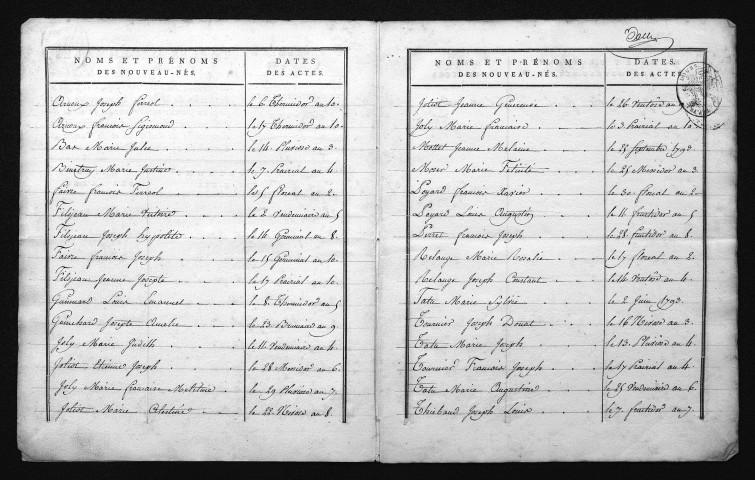 NOMS ET PRÉNOMS DES NOUVEAU-NÉS. DATES DES ACTES.
Arnoux Joseph Ferreol le 6 Thermidor an 10.
Arnoux francois Sigismond le 17 Thermidor an 10
Bas Marie Julie le 14 Pluviose an 3.
Marie Justine le 7 Prairial an 4.
faivre francois Ferreol le 5 floreal an 2.
Filijean Marie Victoire le 2 Vendemiaire an 5
Filijean Joseph hypolite le 16 Germinal an 8.
Faivre francois Joseph le 15 Germinal an 10.
Filijean Jeanne Josephe le 17 Prairial an 10.
Guinnard Louis Emanuel le 8 Thermidor an 5
Guinchard Josephe Amelie le 23 Brumaire an 9.
Joly Marie Judith le 11 Vendemiaire an 4.
Joliot Etienne Joseph le 28 Messidor an 6.
Joly Marie francoise Melitine le 29 Pluviose an 7.
Joliot Marie Celestine le 22 Nivose an 8.
NOMS ET PRÉNOMS DES NOUVEAU-NÉS. DATES DES ACTES.
Joliot Jeanne Genereuse le 26 Ventose an
Joly Marie francoise le 3 Prairial an 10
Mottet Jeanne Melanie le 22 Septembre 1793
Moser Marie Felicité le 25 Messidor an 3.
Loyard francois Xavier le 30 floreal an 2.
Loyard Louis Augustin le 11 fructidor an 5
Perret francois Joseph le 28 fructidor an 8.
Relange Marie Rosalie le 17 floreal an 2.
Relange Joseph Constant le 14 Ventose an 4.
Tatu Marie Sylvie le 2 Juin 1793.
Tournier Joseph Donat le 16 Nivose an 3.
Tatu Marie Joseph le 13 Pluviose an 4.
Tournier Francois Joseph le 17 Prairial an 4.
Tatu Marie Augustine le 25 Vendemiaire an 6.
Thiebaud Joseph Louis le 7 fructidor an 7.